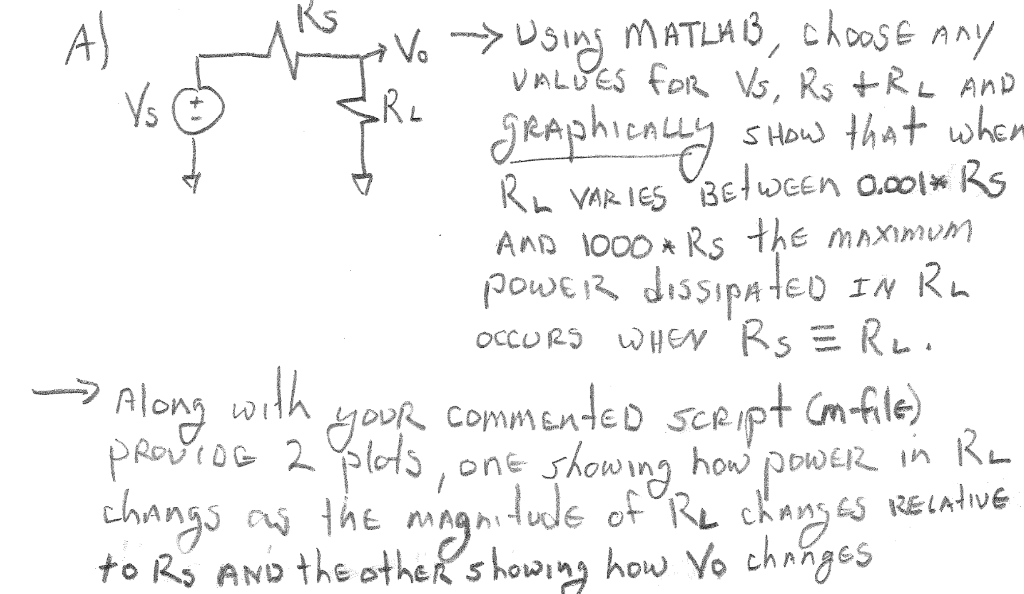 A)
Rs
Vo
Vs
+
-
RL
→ Using MATLAB, choose any
values for Vs, Rs + RL and
graphically show that when
RL varies between 0.001* Rs
and 1000 * Rs the maximum
power dissipated in RL
occurs when Rs ≡ RL.
→ Along with your commented script (m-file)
provide 2 plots, one showing how power in RL
changs as the magnitude of RL changes relative
to Rs and the other showing how Vo changes